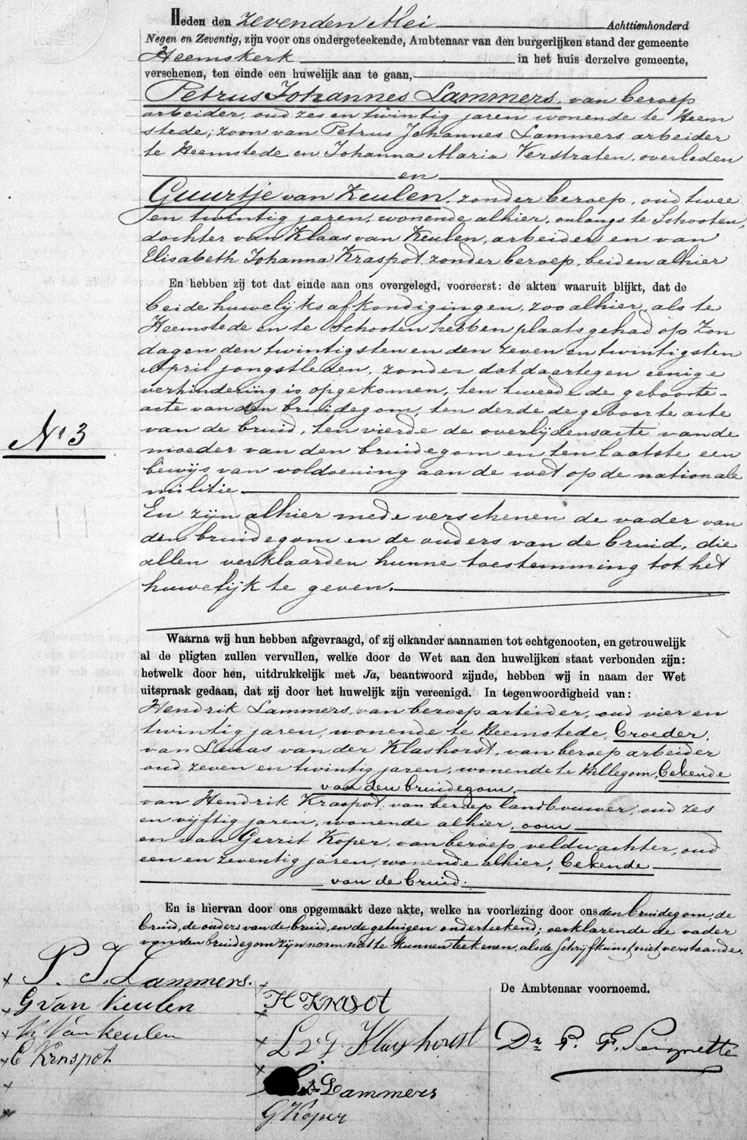 Heden den zevenden Mei Achttienhonderd
Negen en Zeventig, zijn voor ons ondergeteekende, Ambtenaar van den burgerlijken stand der gemeente
Heemskerk in het huis derzelve gemeente,
verschenen, ten einde een huwelijk aan te gaan,
Petrus Johannes Lammers, van beroep
arbeider, oud zes en twintig jaren wonende te Heem
stede; zoon van Petrus Johannes Lammers arbeider
te Heemstede en Johanna Maria Verstraten, overleden
en
Guurtje van Keulen, zonder beroep, oud twee
en twintig jaren, wonende alhier, onlangs te Schooten,
dochter van Klaas van Keulen, arbeider en van
Elisabeth Johanna Kraspot, zonder beroep, beiden alhier
En hebben zij tot dat einde aan ons overgelegd, vooreerst: de akten waaruit blijkt, dat de
beide huwelijksafkondigingen, zoo alhier, als te
Heemstede en te Schooten hebben plaats gehad op Zon
dagen den twintigsten en den zeven en twintigsten
April jongstleden, zonder dat daartegen eenige
verhindering is opgekomen, ten tweede de geboorte-
acte van den bruidegom, ten derde de geboorte acte
van de bruid, ten vierde de overlijdensacte van de
moeder van den bruidegom en ten laatste een
bewijs van voldoening aan de wet op de nationale
militie
No 3
En zijn alhier mede verschenen de vader van
den bruidegom en de ouders van de bruid, die
allen verklaarden hunne toestemming tot het
huwelijk te geven.
Waarna wij hun hebben afgevraagd, of zij elkander aannamen tot echtgenooten, en getrouwelijk
al de pligten zullen vervullen, welke door de Wet aan den huwelijken staat verbonden zijn:
hetwelk door hen, uitdrukkelijk met Ja, beantwoord zijnde, hebben wij in naam der Wet
uitspraak gedaan, dat zij door het huwelijk zijn vereenigd. In tegenwoordigheid van:
Hendrik Lammers, van beroep arbeider, oud vier en
twintig jaren, wonende te Heemstede, broeder,
van Lucas van der Klashorst, van beroep arbeider
oud zeven en twintig jaren, wonende te Hillegom, bekende
van den bruidegom,
van Hendrik Kraspot van beroep landbouwer, oud zes
en vijftig jaren, wonende alhier, oom
en van Gerrit Koper, van beroep veldwachter, oud
een en zeventig jaren, wonende alhier, bekende
van de bruid.
En is hiervan door ons opgemaakt deze akte, welke na voorlezing door ons den bruidegom, de
bruid, de ouders van de bruid, en de getuigen onderteekend; verklarende de vader
van den bruidegom zijn naam niet te kunnen teekenen, als de schrijfkunst niet verstaande.
P. J. Lammers.
G van Keulen
K. Van keulen
E Krnspot
H Krasot
L v d Klashorst
Lammers
G Koper
De Ambtenaar voornoemd.
Dr P. F. Seignette